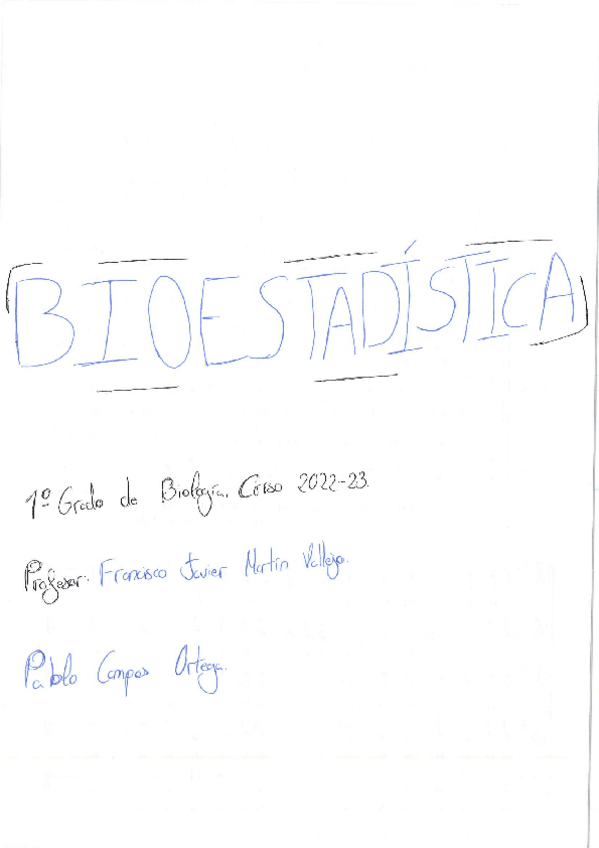 BIOESTADÍSTICA
1º Grado de Biología. Curso 2022-23.
Profesor: Francisco Javier Martín Vallejo.
Pablo Campos Ortega.